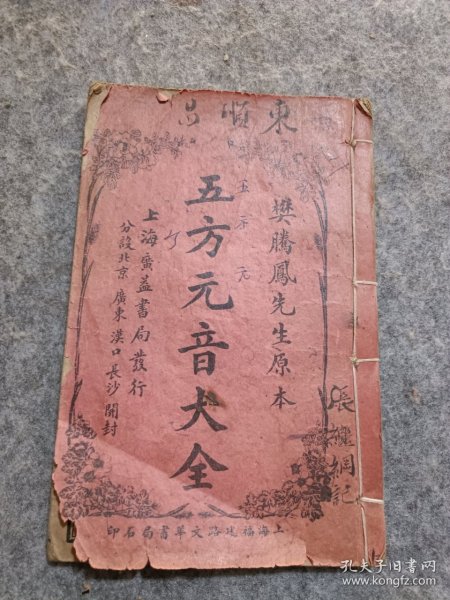 東順昌
樊騰鳳先生原本
五方元音大全
五方元
上海廣益書局發行
分設北京 廣東 漢口 長沙 開封
張維綱記
上海福建路文華書局石印
孔夫子旧书网
www.kongfz.com